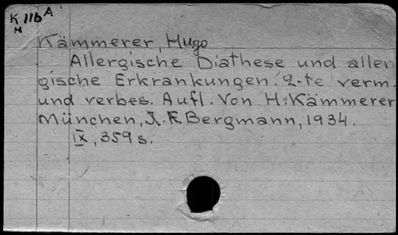 K 11b A
H
Kämmerer, Hugo
Allergische Diathese und aller
gische Erkrankungen. 2-te verm.
und verbes. Aufl. Von H. Kämmerer
München, J. F. Bergmann, 1934.
IX, 359 s.